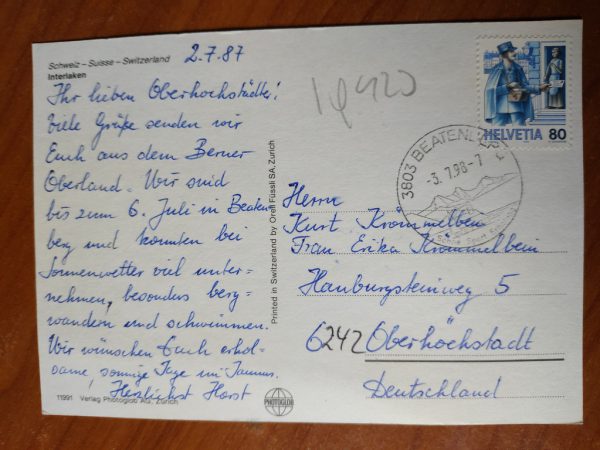 Schweiz – Suisse – Switzerland
Interlaken
2.7.87
Ihr lieben Oberhöchstädter!
Viele Grüße senden wir
Euch aus dem Berner
Oberland. Wir sind
bis zum 6. Juli in Beaten-
berg und konnten bei
Sonnenwetter viel unter-
nehmen, besonders berg-
wandern und schwimmen.
Wir wünschen Euch erhol-
same, sonnige Tage im Taunus.
Herzlichst Horst
11991 Verlag Photoglob AG, Zürich
Printed in Switzerland by Orell Füssli SA, Zürich
PHOTOGLOB
HELVETIA 80
3803 BEATENBERG
-3.7.98-7
Herrn
Kurt Krömmelbein
Frau Erika Krömmelbein
Hainburgsteinweg 5
6242 Oberhöchstadt
Deutschland